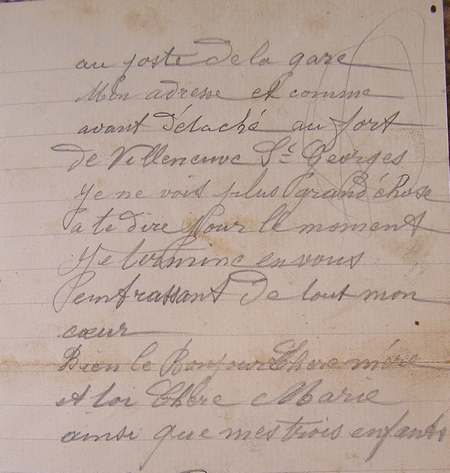 au poste de la gare
Mon adresse et comme
avant détaché au fort
de Villeneuve St Georges
Je ne vois plus grand chose
a te dire Pour le moment
Je termine en vous
embrassant de tout mon
cœur
Bien le Bonjour Chere mère
et toi Chère Marie
ainsi que mes trois enfants